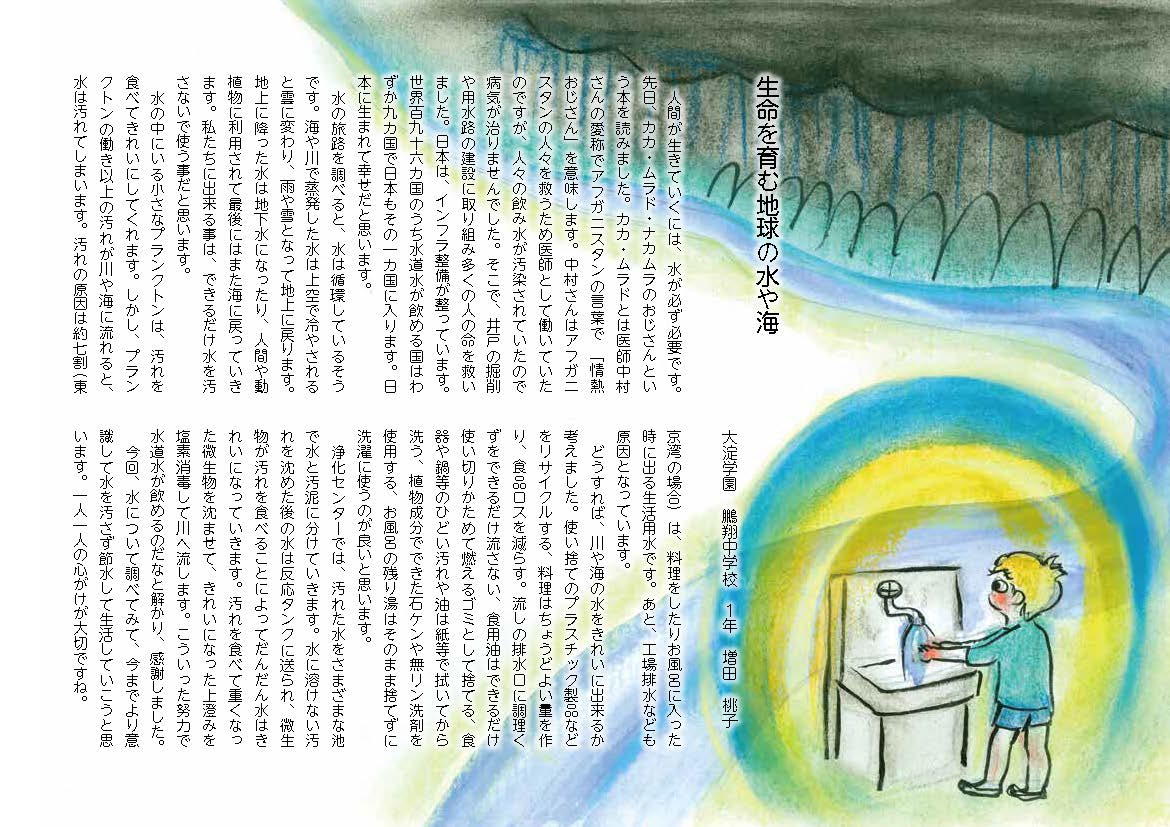 生命を育む地球の水や海
大淀学園　鵬翔中学校　１年　増田　桃子
人間が生きていくには、水が必ず必要です。
先日、カカ・ムラド・ナカムラのおじさんとい
う本を読みました。カカ・ムラドとは医師中村
さんの愛称でアフガニスタンの言葉で　「情熱
おじさん」を意味します。中村さんはアフガニ
スタンの人々を救うため医師として働いていた
のですが、人々の飲み水が汚染されていたので
病気が治りませんでした。そこで、井戸の掘削
や用水路の建設に取り組み多くの人の命を救い
ました。日本は、インフラ整備が整っています。
世界百九十六カ国のうち水道水が飲める国はわ
ずか九カ国で日本もその一カ国に入ります。日
本に生まれて幸せだと思います。
水の旅路を調べると、水は循環しているそう
です。海や川で蒸発した水は上空で冷やされる
と雲に変わり、雨や雪となって地上に戻ります。
地上に降った水は地下水になったり、人間や動
植物に利用されて最後にはまた海に戻っていき
ます。私たちに出来る事は、できるだけ水を汚
さないで使う事だと思います。
水の中にいる小さなプランクトンは、汚れを
食べてきれいにしてくれます。しかし、プラン
クトンの働き以上の汚れが川や海に流れると、
水は汚れてしまいます。汚れの原因は約七割（東
京湾の場合）は、料理をしたりお風呂に入った
時に出る生活用水です。あと、工場排水なども
原因となっています。
どうすれば、川や海の水をきれいに出来るか
考えました。使い捨てのプラスチック製品など
をリサイクルする、料理はちょうどよい量を作
り、食品ロスを減らす。流しの排水口に調理く
ずをできるだけ流さない、食用油はできるだけ
使い切りかためて燃えるゴミとして捨てる、食
器や鍋等のひどい汚れや油は紙等で拭いてから
洗う、植物成分でできた石ケンや無リン洗剤を
使用する、お風呂の残り湯はそのまま捨てずに
洗濯に使うのが良いと思います。
浄化センターでは、汚れた水をさまざまな池
で水と汚泥に分けていきます。水に溶けない汚
れを沈めた後の水は反応タンクに送られ、微生
物が汚れを食べることによってだんだん水はき
れいになっていきます。汚れを食べて重くなっ
た微生物を沈ませて、きれいになった上澄みを
塩素消毒して川へ流します。こういった努力で
水道水が飲めるのだなと解かり、感謝しました。
今回、水について調べてみて、今までより意
識して水を汚さず節水して生活していこうと思
います。一人一人の心がけが大切ですね。